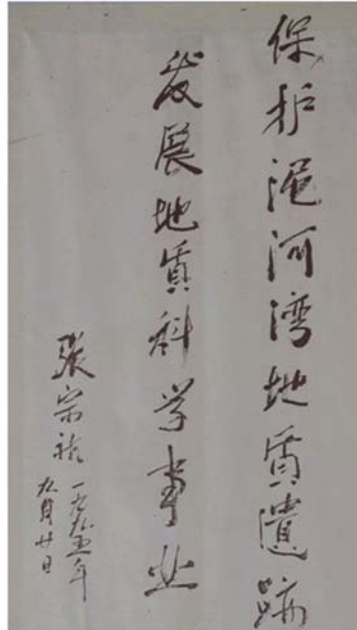 保护泥河湾地质遺跡
发展地质科学事业
張宗祜 一九九五年
九月廿日